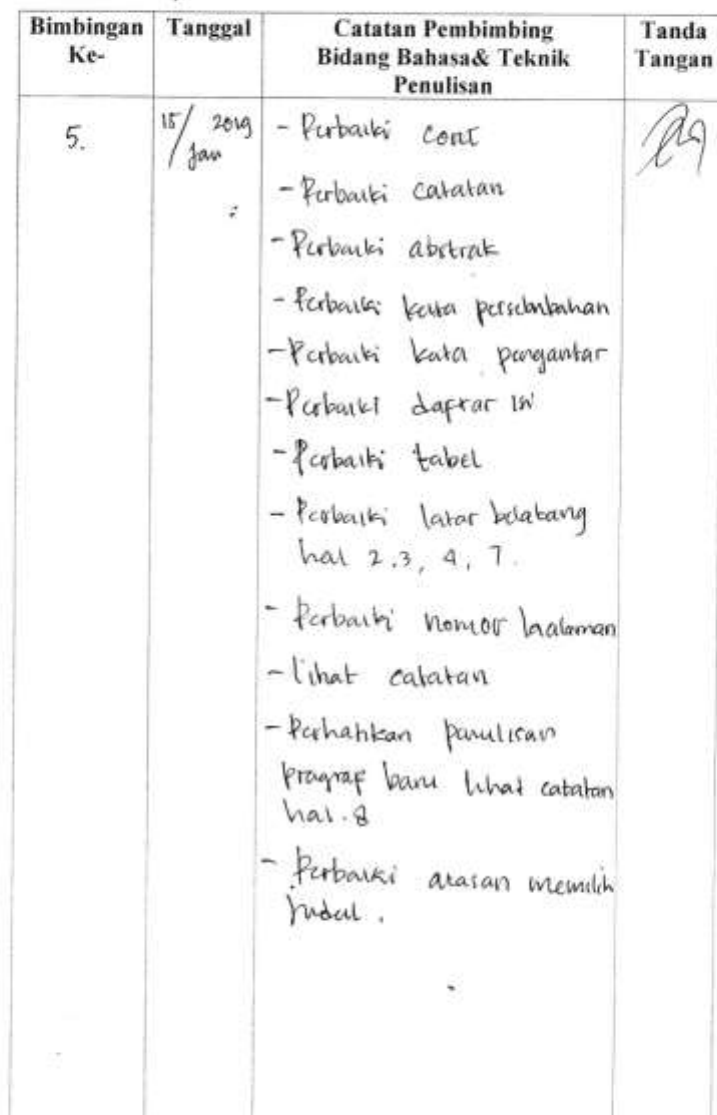 Bimbingan Ke-
Tanggal
Catatan Pembimbing
Bidang Bahasa& Teknik
Penulisan
Tanda Tangan
5.
15/Jan 2019
- Perbaiki
- Perbaiki catatan
- Perbaiki abstrak
- Perbaiki kata persembahan
- Perbaiki kata pengantar
- Perbaiki daftar isi
- Perbaiki tabel
- Perbaiki latar belakang
hal 2.3, 4, 7.
- Perbaiki nomor halaman
- lihat catatan
- Perhatikan penulisan
pragraf baru lihat catatan
hal. 8
- Perbaiki alasan memilih
judul.